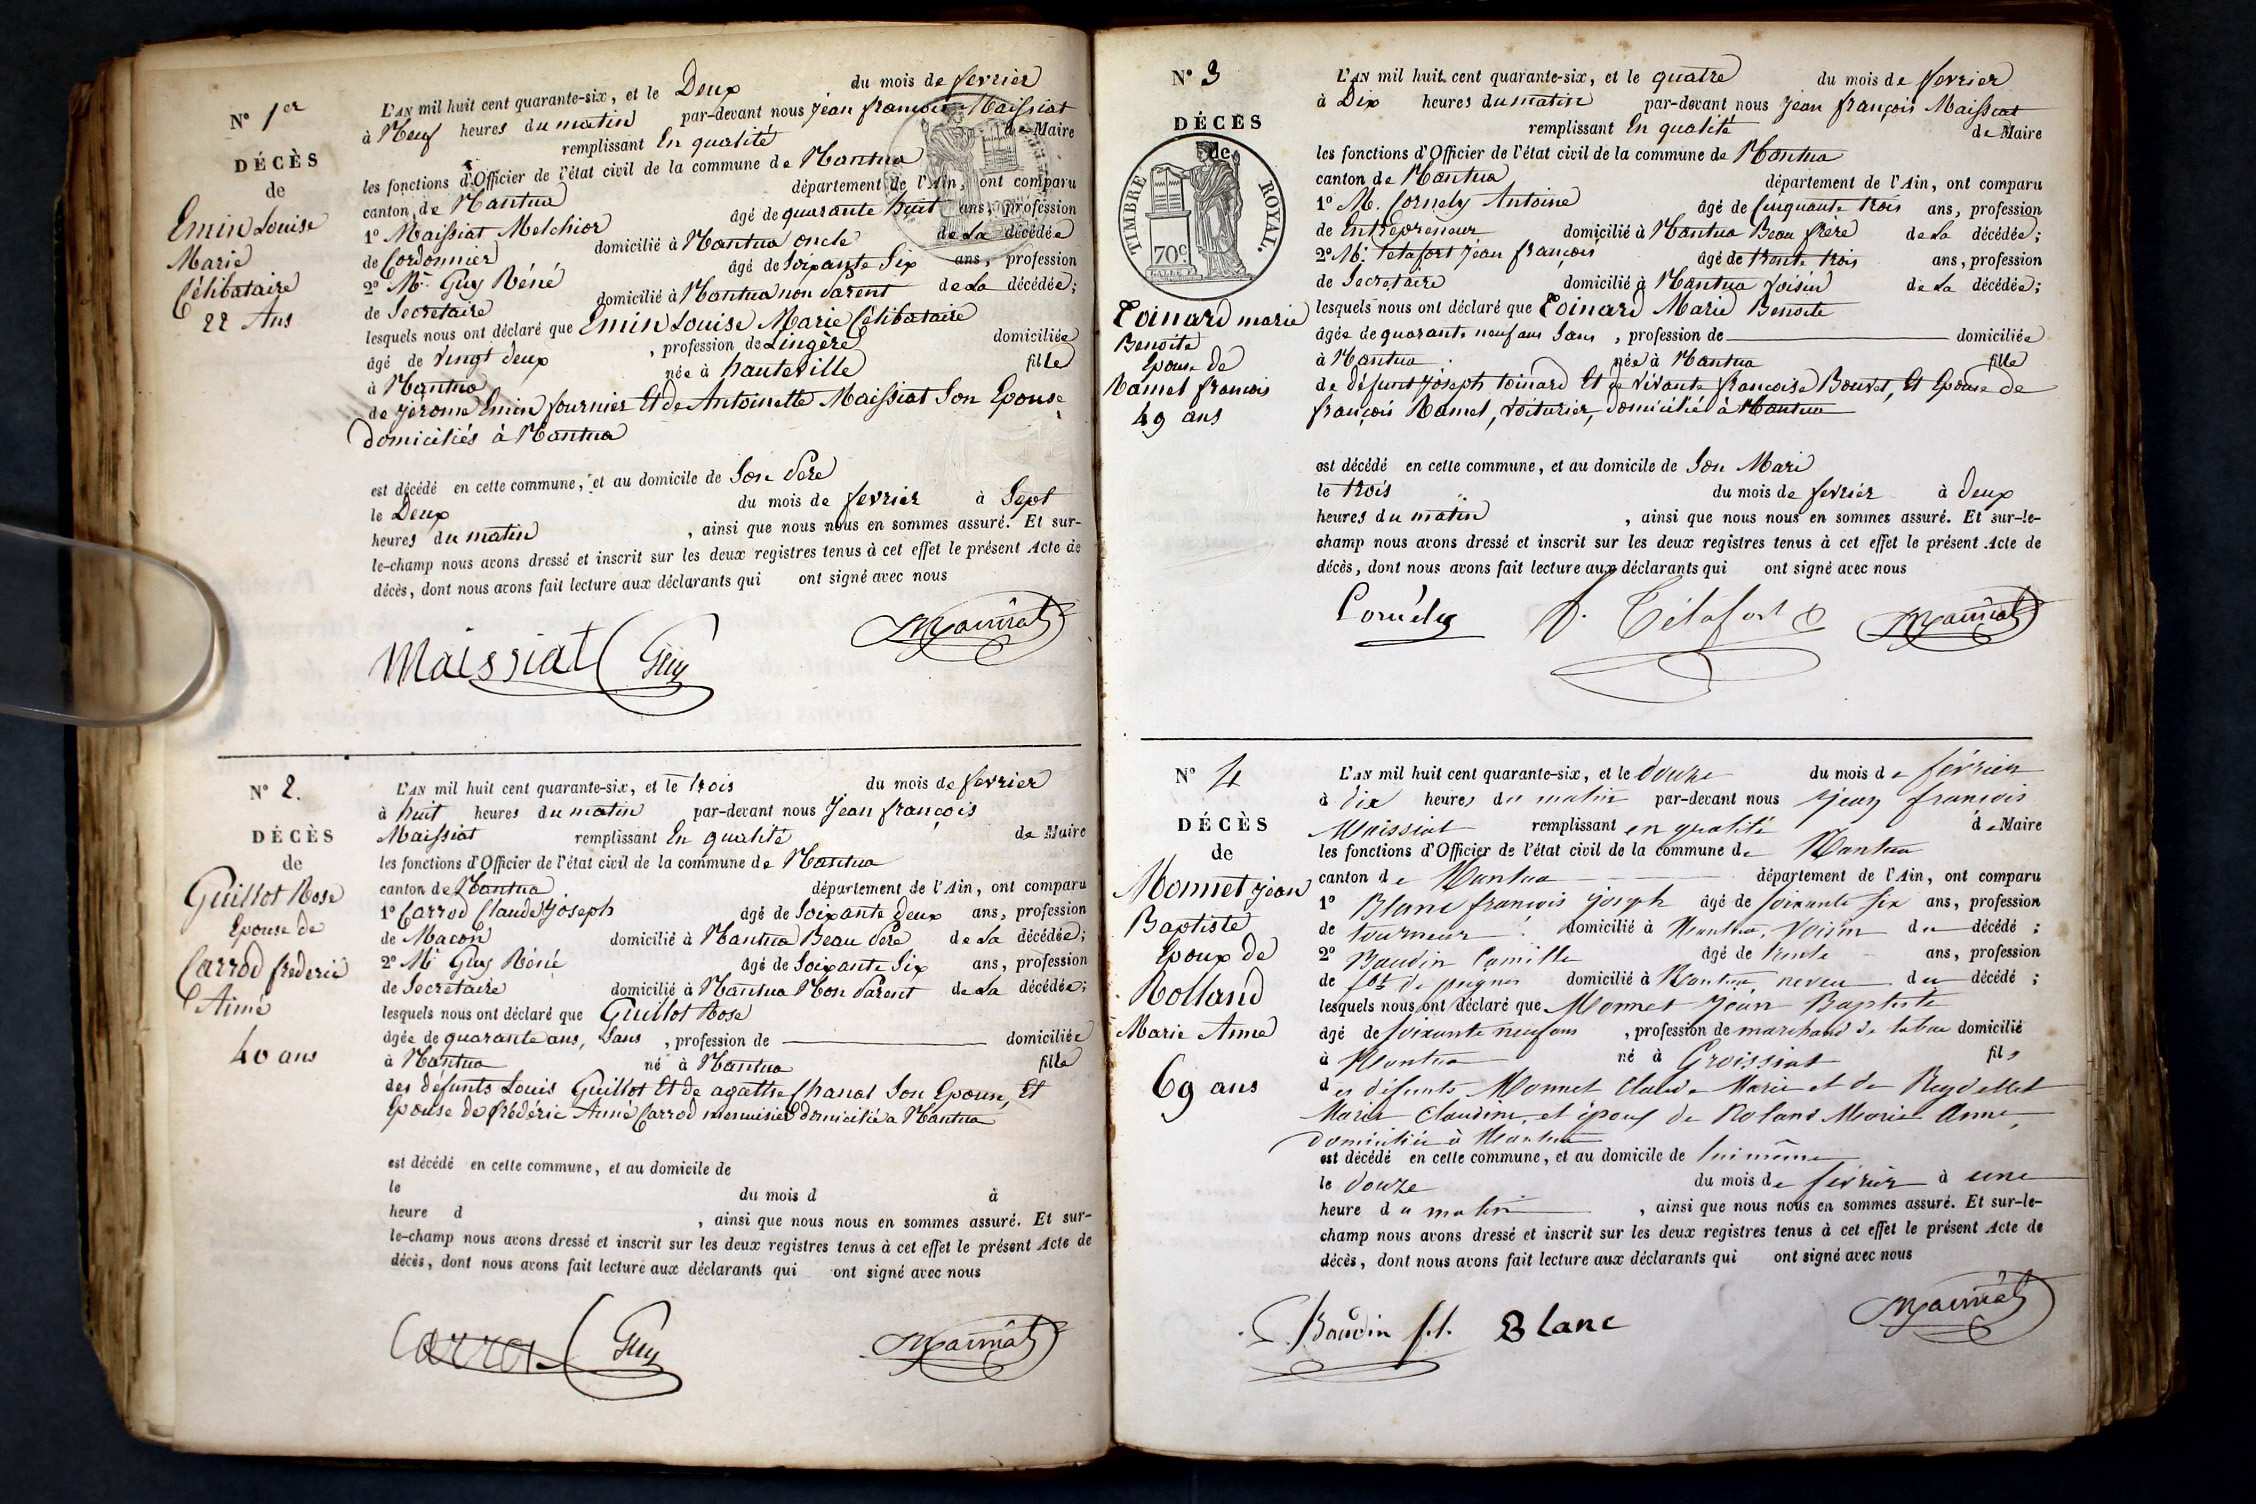 N° 1er
DÉCÈS
de
Emin Louise
Marie
Célibataire
22 Ans
L'AN mil huit cent quarante-six, et le Deux du mois de fevrier
à Neuf heures du matin par-devant nous Jean françois Maissiat
remplissant En qualité de Maire
les fonctions d'Officier de l'état civil de la commune de Nantua
canton de Nantua département de l'Ain, ont comparu
1° Maissiat Melchior âgé de quarante huit ans, profession
de Cordonnier domicilié à Nantua oncle de La décédée
2° Mr Guy Réné âgé de Soixante Six ans, profession
de Secretaire domicilié à Nantua non Parent de La décédée;
lesquels nous ont déclaré que Emin Louise Marie Célibataire
âgé de vingt deux , profession de Lingère domiciliée
à Nantua née à hauteville fille
de Jérome Emin fournier Et de Antoinette Maissiat Son Epouse
domiciliés à Nantua
est décédé en cette commune, et au domicile de Son Père
le Deux du mois de fevrier à Sept
heures du matin , ainsi que nous nous en sommes assuré. Et sur-
le-champ nous avons dressé et inscrit sur les deux registres tenus à cet effet le présent Acte de
décès, dont nous avons fait lecture aux déclarants qui ont signé avec nous
Maissiat Guy Maissiat
N° 2.
DÉCÈS
de
Guillot Rose
Epouse de
Carrod frederic
Aimé
40 ans
L'AN mil huit cent quarante-six, et le trois du mois de fevrier
à huit heures du matin par-devant nous Jean françois
Maissiat remplissant En qualité de Maire
les fonctions d'Officier de l'état civil de la commune de Nantua
canton de Nantua département de l'Ain, ont comparu
1° Carrod Claude Joseph âgé de Soixante deux ans, profession
de Macon domicilié à Nantua Beau Père de La décédée;
2° Mr Guy Réné âgé de Soixante Six ans, profession
de Secretaire domicilié à Nantua Non Parent de La décédée;
lesquels nous ont déclaré que Guillot Rose
âgée de quarante ans, Sans , profession de domiciliée
à Nantua né à Nantua fille
des défunts Louis Guillot Et de agathe Chanal Son Epouse, Et
Epouse de frédéric Aimé Carrod menuisier domicilié a Nantua
est décédé en cette commune, et au domicile de
le du mois d à
heure d , ainsi que nous nous en sommes assuré. Et sur-
le-champ nous avons dressé et inscrit sur les deux registres tenus à cet effet le présent Acte de
décès, dont nous avons fait lecture aux déclarants qui ont signé avec nous
Carrod Guy Maissiat
N° 3
DÉCÈS
de
TIMBRE ROYAL.
70c
Toinard marie
Benoite
Epouse de
Namel françois
49 ans
L'AN mil huit cent quarante-six, et le quatre du mois de fevrier
à Dix heures du matin par-devant nous Jean françois Maissiat
remplissant En qualité de Maire
les fonctions d'Officier de l'état civil de la commune de Nantua
canton de Nantua département de l'Ain, ont comparu
1° M. Cornely Antoine âgé de Cinquante trois ans, profession
de Entrepreneur domicilié à Nantua Beau frere de La décédée;
2° Mr. Tetafort Jean françois âgé de trente trois ans, profession
de Secretaire domicilié à Nantua Voisin de La décédée;
lesquels nous ont déclaré que Toinard Marie Benoite
âgée de quarante neuf ans Sans , profession de domiciliée
à Nantua née à Nantua fille
de défunt Joseph toinard Et de vivante françoise Bouvet, Et Epouse de
françois Namel, voiturier, domicilié à Nantua
est décédé en cette commune, et au domicile de Son Mari
le trois du mois de fevrier à deux
heures du matin , ainsi que nous nous en sommes assuré. Et sur-le-
champ nous avons dressé et inscrit sur les deux registres tenus à cet effet le présent Acte de
décès, dont nous avons fait lecture aux déclarants qui ont signé avec nous
Cornély f. Tétafort Maissiat
N° 4
DÉCÈS
de
Monnet Jean
Baptiste
Epoux de
Rolland
Marie Anne
69 ans
L'AN mil huit cent quarante-six, et le douze du mois de février
à dix heures du matin par-devant nous Jean françois
Maissiat remplissant en qualité de Maire
les fonctions d'Officier de l'état civil de la commune de Nantua
canton de Nantua département de l'Ain, ont comparu
1° Blanc françois joseph âgé de soixante six ans, profession
de tourneur domicilié à Nantua, voisin du décédé ;
2° Baudin Camille âgé de trente ans, profession
de fbt de peignes domicilié à Nantua, neveu du décédé ;
lesquels nous ont déclaré que Monnet Jean Baptiste
âgé de soixante neuf ans , profession de marchand de tabac domicilié
à Nantua né à Groissiat fils
des défunts Monnet Claude Marie et de Reydellet
Marie Claudine, et époux de Roland Marie Anne,
domiciliée à Nantua
est décédé en cette commune, et au domicile de lui même
le douze du mois de février à une
heure du matin , ainsi que nous nous en sommes assuré. Et sur-le-
champ nous avons dressé et inscrit sur les deux registres tenus à cet effet le présent Acte de
décès, dont nous avons fait lecture aux déclarants qui ont signé avec nous
C. Baudin f.t. Blanc Maissiat